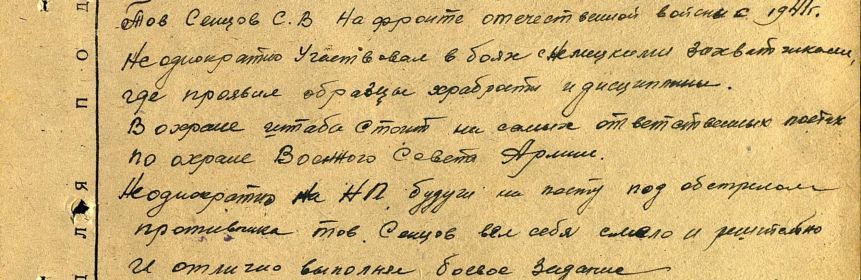 Тов Сенцов С.В На фронте отечественной войны с 1941г.
Неоднократно Участвовал в боях с немецкими захватчиками,
где проявил образцы храбрости и дисциплины.
В охране штаба стоит на самых ответственных постах
по охране Военного Совета Армии.
Неоднократно на НП будучи на посту под обстрелом
противника тов. Сенцов вел себя смело и решительно
и отлично выполнял боевое задание
ДЛЯ ПОД